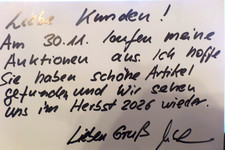 Liebe Kunden!
Am 30.11. laufen meine
Auktionen aus. Ich hoffe
Sie haben schöne Artikel
gefunden und wir sehen
uns im Herbst 2026 wieder.
Lieben Gruß